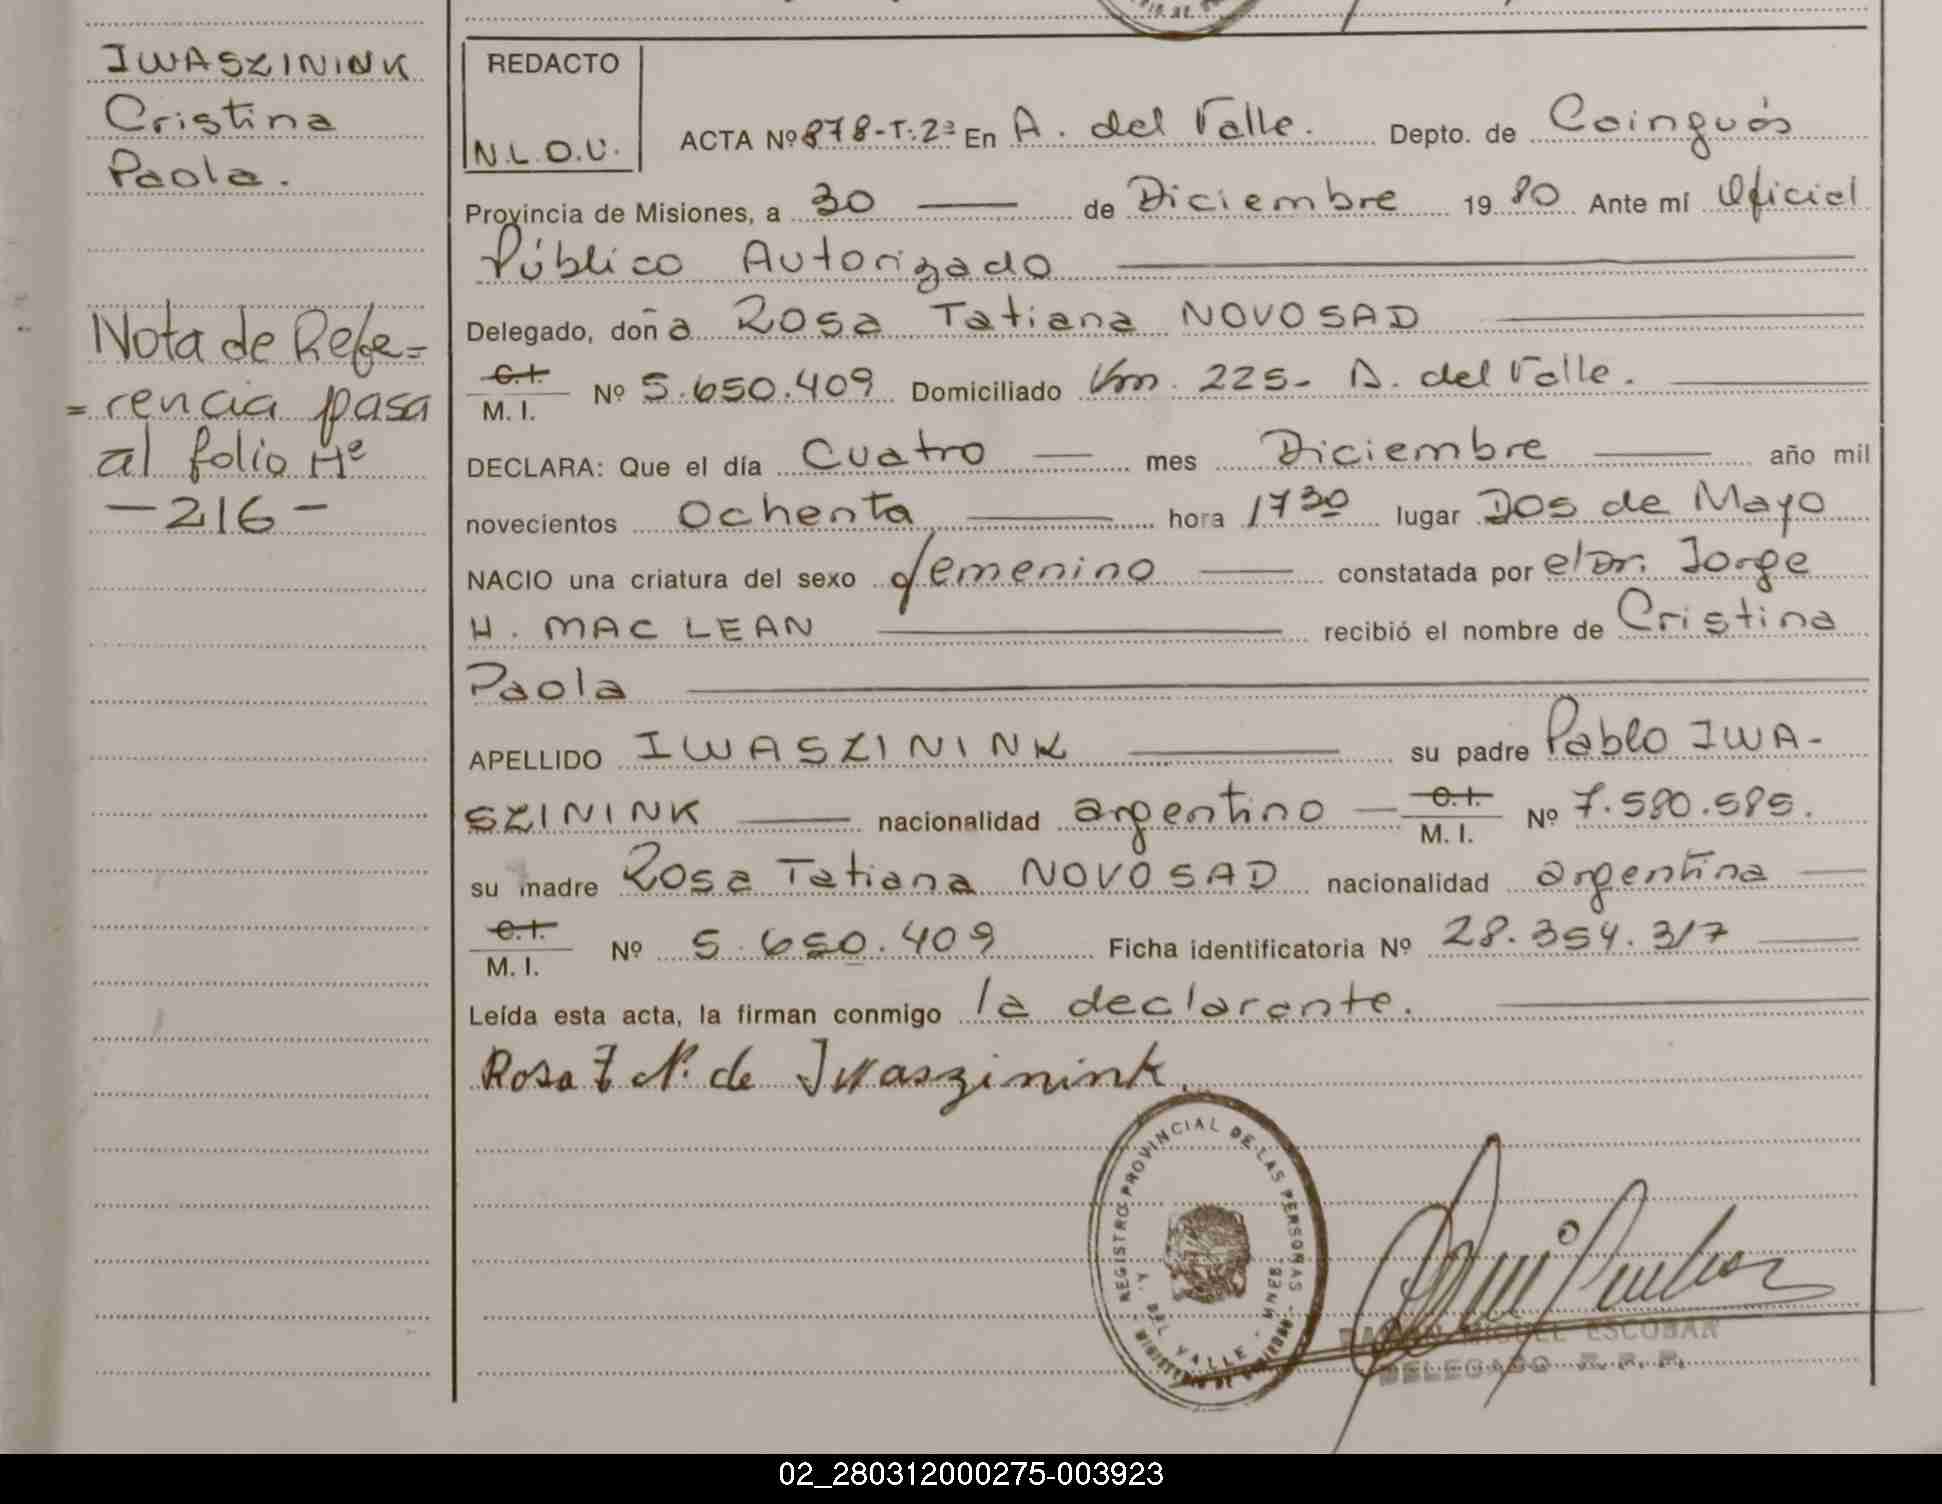 IWASZININK
Cristina
Paola.
Nota de Refe=
=rencia pasa
al folio Nº
-216-
REDACTO
N.L.O.U.
ACTA Nº 878-T:2ª En A. del Valle. Depto. de Cainguás
Provincia de Misiones, a 30 — de Diciembre 1980 Ante mí Oficial
Público Autorizado —
Delegado, doña Rosa Tatiana NOVOSAD —
C.I.
M. I. Nº 5.650.409 Domiciliado Km. 225- A. del Valle. —
DECLARA: Que el día Cuatro — mes Diciembre — año mil
novecientos Ochenta — hora 17 30 lugar Dos de Mayo
NACIO una criatura del sexo femenino — constatada por el Dr. Jorge
H. MAC LEAN — recibió el nombre de Cristina
Paola —
APELLIDO IWASZININK — su padre Pablo IWA-
SZININK — nacionalidad argentino — C.I. M. I. Nº 7.580.585.
su madre Rosa Tatiana NOVOSAD nacionalidad argentina —
C.I.
M. I. Nº 5.650.409 Ficha identificatoria Nº 28.354.317 —
Leída esta acta, la firman conmigo la declarante. —
Rosa T N. de Iwaszinink
REGISTRO PROVINCIAL DE LAS PERSONAS
DEL VALLE
MIGUEL ESCOBAR
DELEGADO R. P. P.
02_280312000275-003923